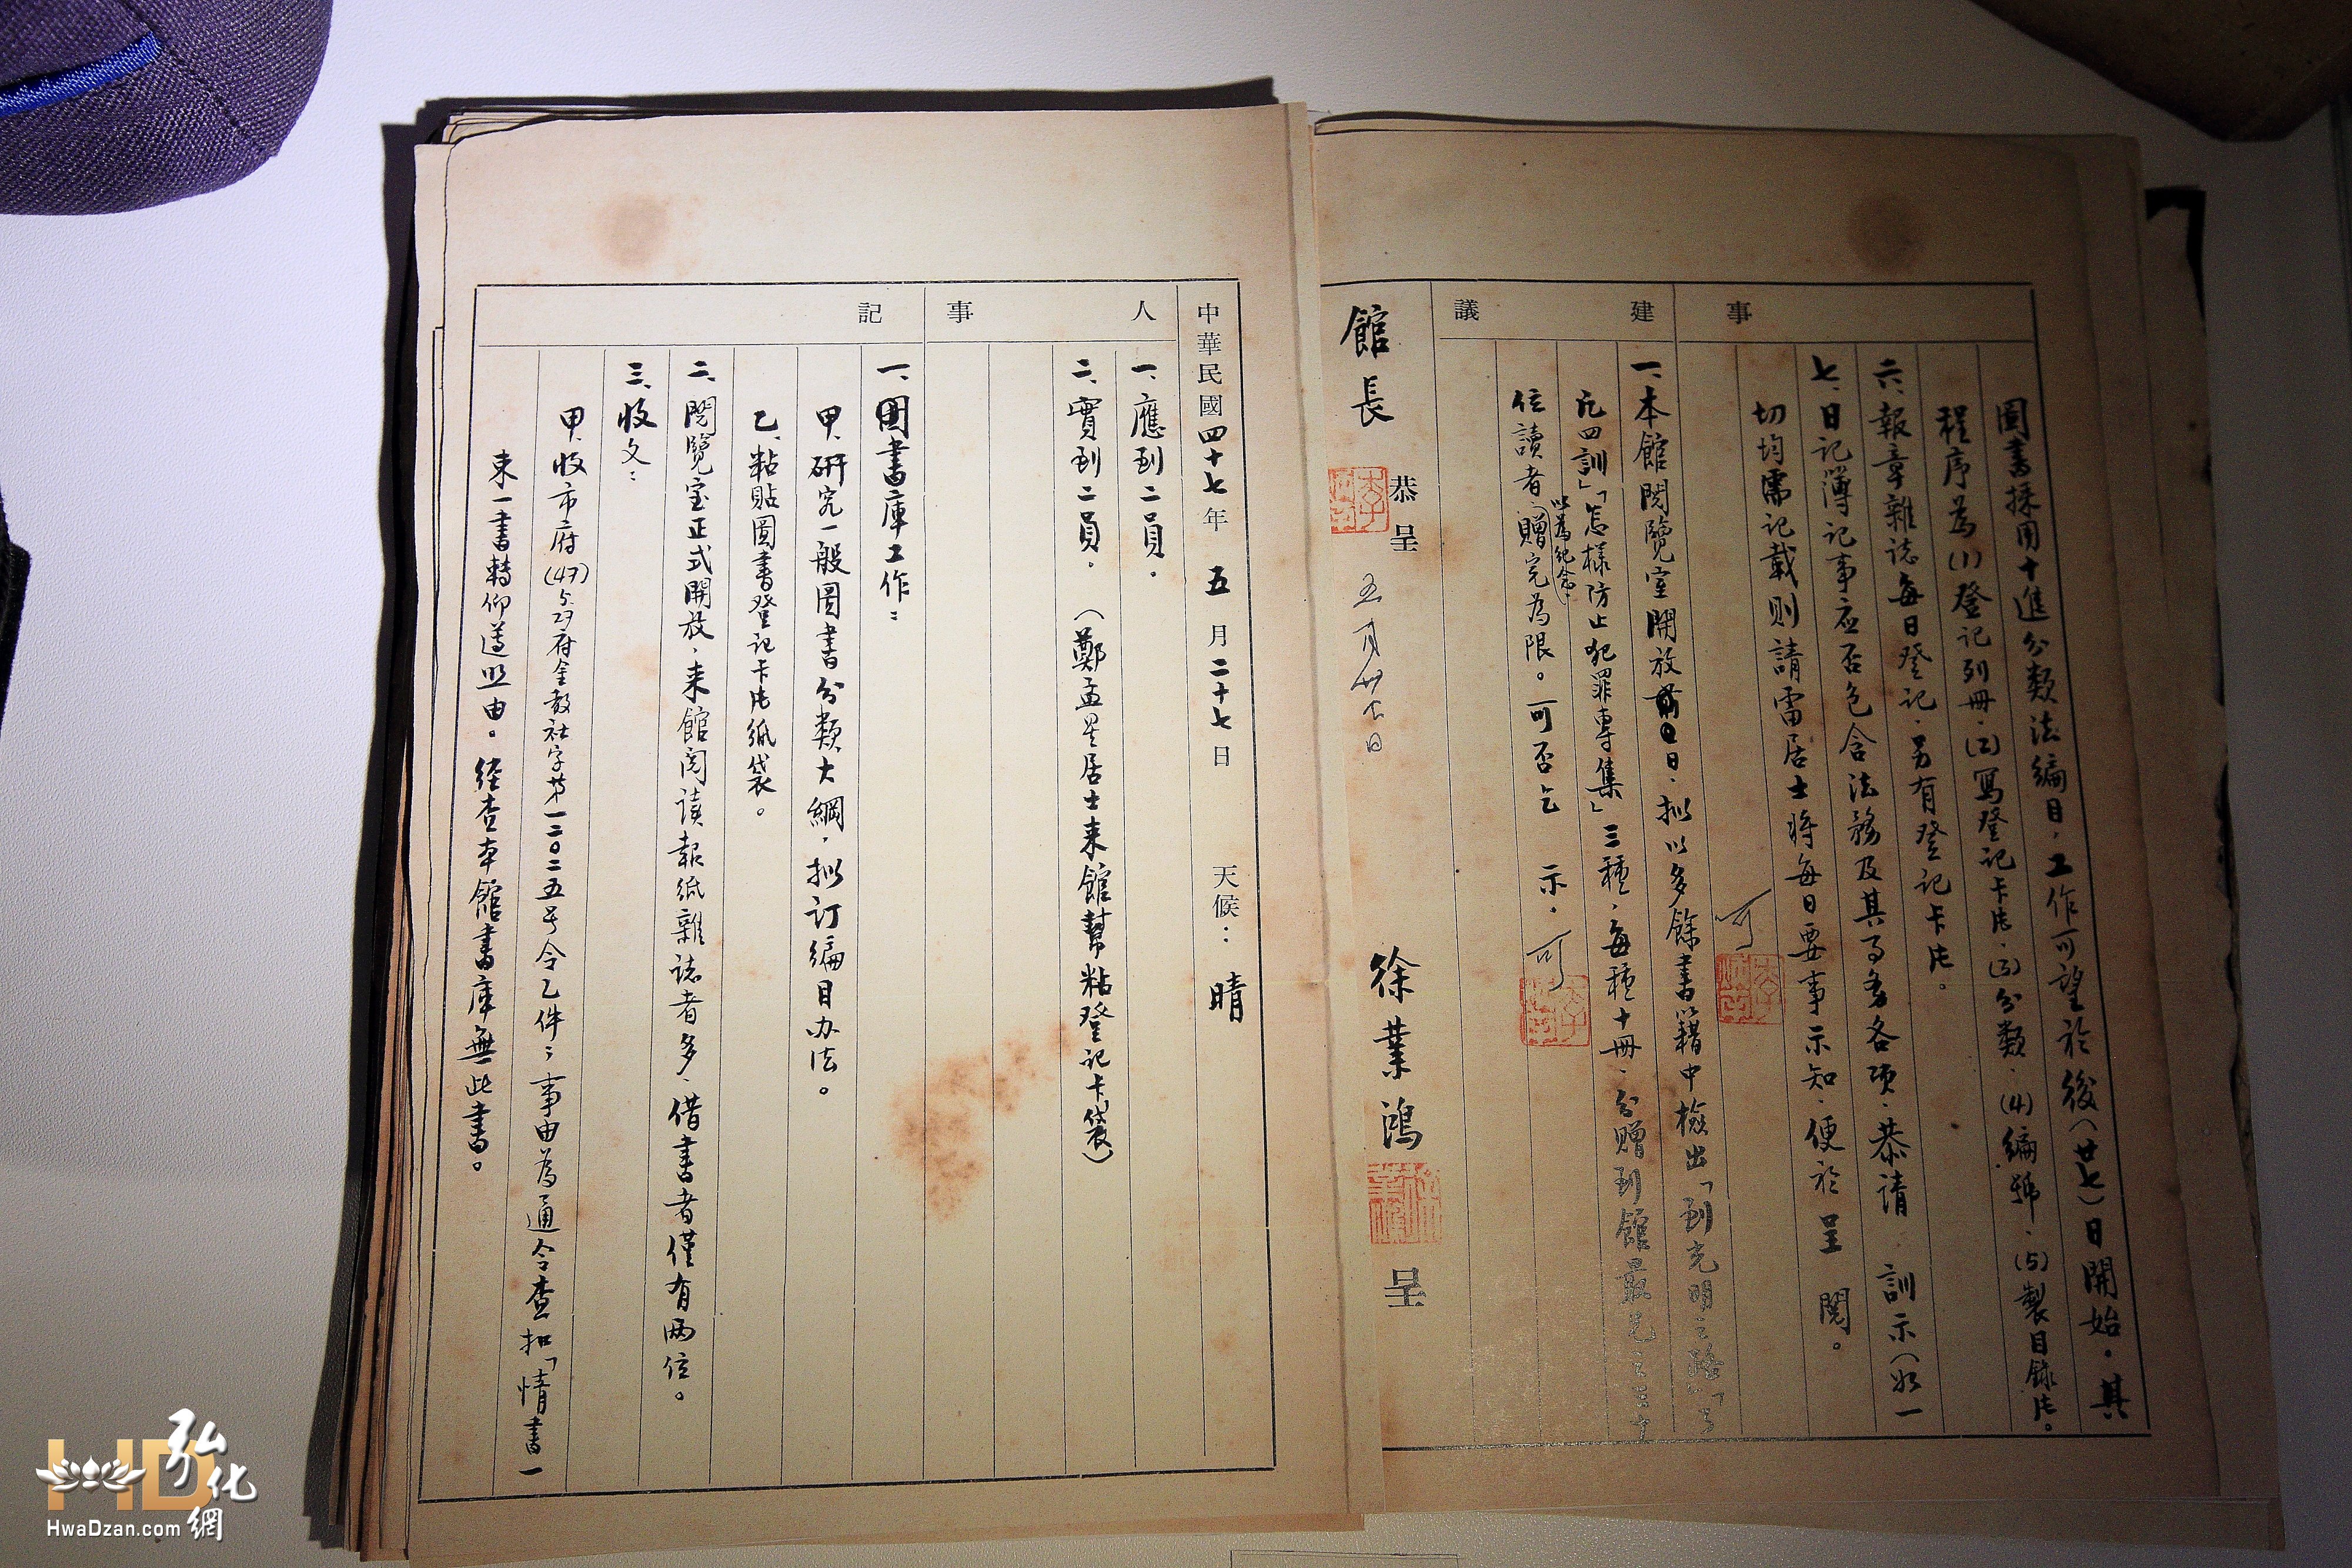 事
圖書採用十進分類法編目，工作可望於後（廿七）日開始。其
程序為(1)登記列冊、(2)寫登記卡片、(3)分類、(4)編號、(5)製目錄片。
六、報章雜誌每日登記，另有登記卡片。
七、日記簿記事應否包含法務及其
各項，恭請 訓示（如一
切均需記載則請雷居士將每日要事示知，便於呈閱。
可
建議
一、本館閱覽室開放
日，拟以多餘書籍中檢出「到光明之路」「了
凡四訓」「怎樣防止犯罪專集」三種，每種十冊，分贈到館最先之三十
位讀者，以為紀念，贈完為限。可否乞 示。
可
館長 恭呈
五月廿七日
徐業鴻 呈
中華民國四十七年 五月二十七日 天候：晴
人事
一、應到二員．
二、實到二員．（鄭孟星居士来館幫粘登記卡袋）
記
一、圖書庫工作：
甲、研究一般圖書分類大綱，拟订編目办法。
乙、粘貼圖書登記卡片紙袋。
二、閱覽室正式開放，来館阅读報紙雜誌者多，借書者僅有两位。
三、收文：
甲、收市府(47)5.27府金教社字第一二〇二五号令乙件；事由為通令查扣「情書一
束一書轉仰遵照由。経查本館書庫無此書。
HD
弘化網
HwaDzan.com